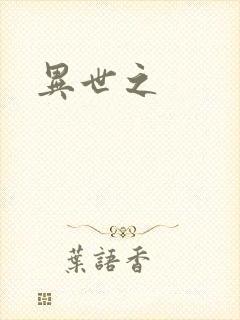 異世之
葉語香